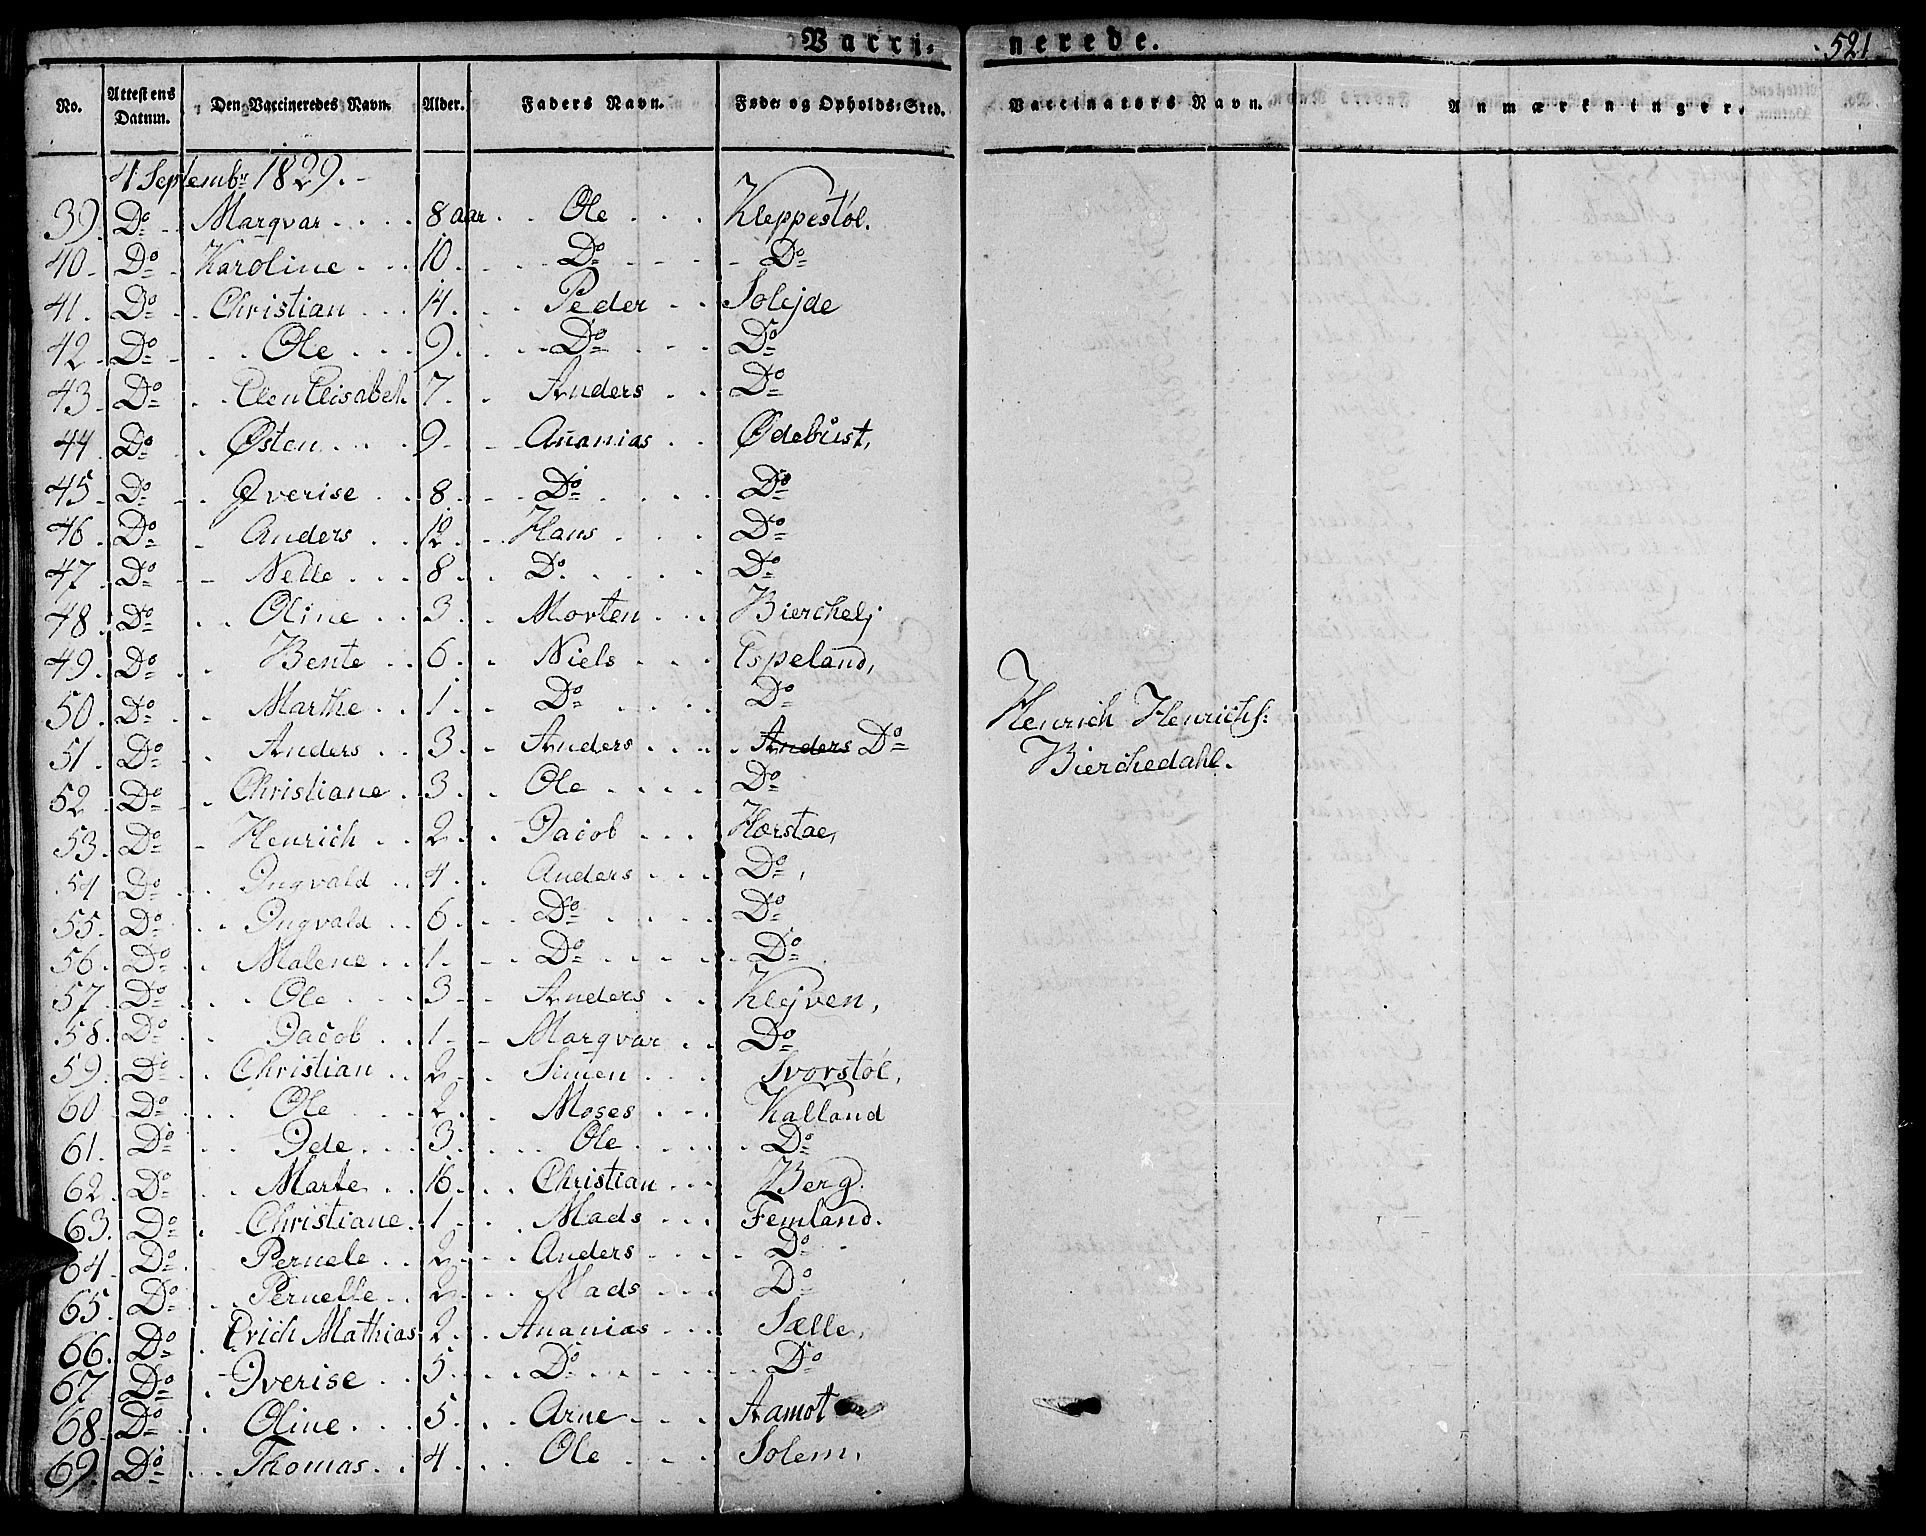 Vacci- nerede. 521
No. Attestens Datum. Den Vaccineredes Navn. Alder. Faders Navn. Føde- og Opholds-Sted. Vaccinators Navn. Anmærkninger.
4 Septembr 1829.
39. Do Marqvar 8 aar Ole Kleppestöl.
40 Do Karoline 10 Do Do
41. Do Christian 14. Peder Solejde
42 Do Ole 9. Do Do
43. Do Elen Elisabet. 7. Anders Do
44 Do Østen 9 Ananias Ødebust,
45 Do Iverise 8 Do Do
46 Do Anders 12 Hans Do
47 Do Nelle 8. Do. Do
48. Do Oline 3 Morten Bierchelj
49. Do Bente 6. Niels Espeland,
50. Do Marthe 1. Do Do
51. Do Anders 3. Anders Anders Do
52 Do Christiane 3. Ole Do
53. Do Henrich 2. Jacob Hørstae,
54 Do Ingvald 4. Anders Do,
55. Do Ingvald 6. Do Do
56. Do Malene 1. Do Do
57. Do Ole 3 Anders Klejven,
58. Do Jacob 1 Marqvar Do
59. Do Christian 2 Simen Svorstöl,
60 Do Ole 2. Moses Kalland
61. Do Dele 3. Ole Do
62. Do Marte 16. Christian Berg.
63. Do Christiane 1 Mads Femland.
64 Do Pernele 2. Anders Do
65. Do Pernelle 2 Mads Do
66. Do Erich Mathias 2. Ananias Sælle,
67 Do Iverise 5. Do Do
68. Do Oline 5. Arne Aamot
69. Do Thomas 4. Ole Solem,
Henrich Henrichs:
Bierchedahl.